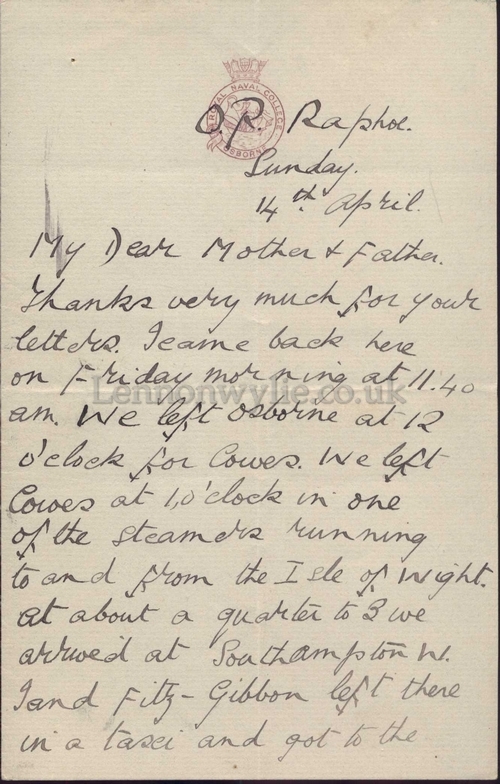 ROYAL NAVAL COLLEGE
OSBORNE
O.R. Raphoe.
Sunday.
14th April.
My Dear Mother & Father.
Thanks very much for your
letters. I came back here
on Friday morning at 11.40
am. We left Osborne at 12
o'clock for Cowes. We left
Cowes at 1,o'clock in one
of the steamers running
to and from the Isle of Wight.
at about a quarter to 3 we
arrived at Southampton W.
I and Fitz-Gibbon left there
in a taxi and got to the
Lennonwylie.co.uk